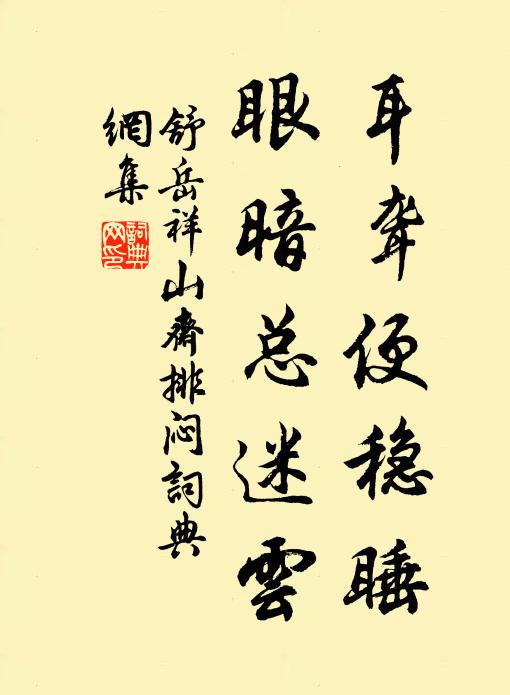 耳聋便稳睡
眼暗总迷雲
舒岳祥山齋排闷詞典
網集
詞典
网印